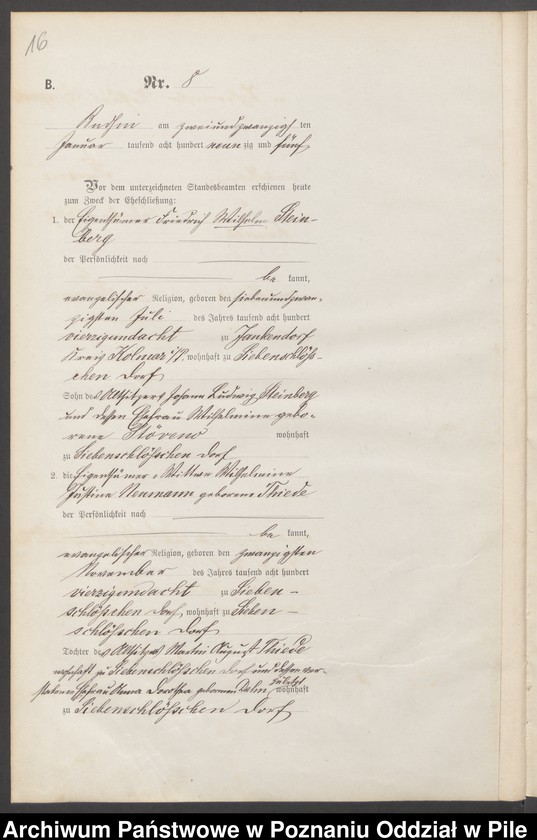 16
B. Nr. 8
am zweiundzwanzigsten
Januar tausend acht hundert neunzig und fünf
Vor dem unterzeichneten Standesbeamten erschienen heute
zum Zweck der Eheschließung:
1. der Eigenthümer Friedrich Wilhelm Stein-
berg
der Persönlichkeit nach
be kannt,
evangelischer Religion, geboren den siebenundzwan-
zigsten Juli des Jahres tausend acht hundert
vierzigundacht zu Jankendorf
Kreis Kolmar i/P, wohnhaft zu Siebenschlöß-
chen Dorf
Sohn des Altsitzers Johann Ludwig Steinberg
und dessen Ehefrau Wilhelmine gebo-
rene wohnhaft
zu Siebenschlößchen Dorf
2. die Eigenthümer-Wittwe Wilhelmine
Justine Neumann geborene Thiede
der Persönlichkeit nach
be kannt,
evangelischer Religion, geboren den zwanzigsten
November des Jahres tausend acht hundert
vierzigundacht zu Sieben-
schlößchen Dorf, wohnhaft zu Sieben-
schlößchen Dorf
Tochter des Altsitzers Martin August Thiede
wohnhaft zu Siebenschlößchen Dorf und dessen ver-
storbenen Ehefrau Anna Dorothea geborenen zuletzt wohnhaft
zu Siebenschlößchen Dorf
Archiwum Państwowe w Poznaniu Oddział w Pile